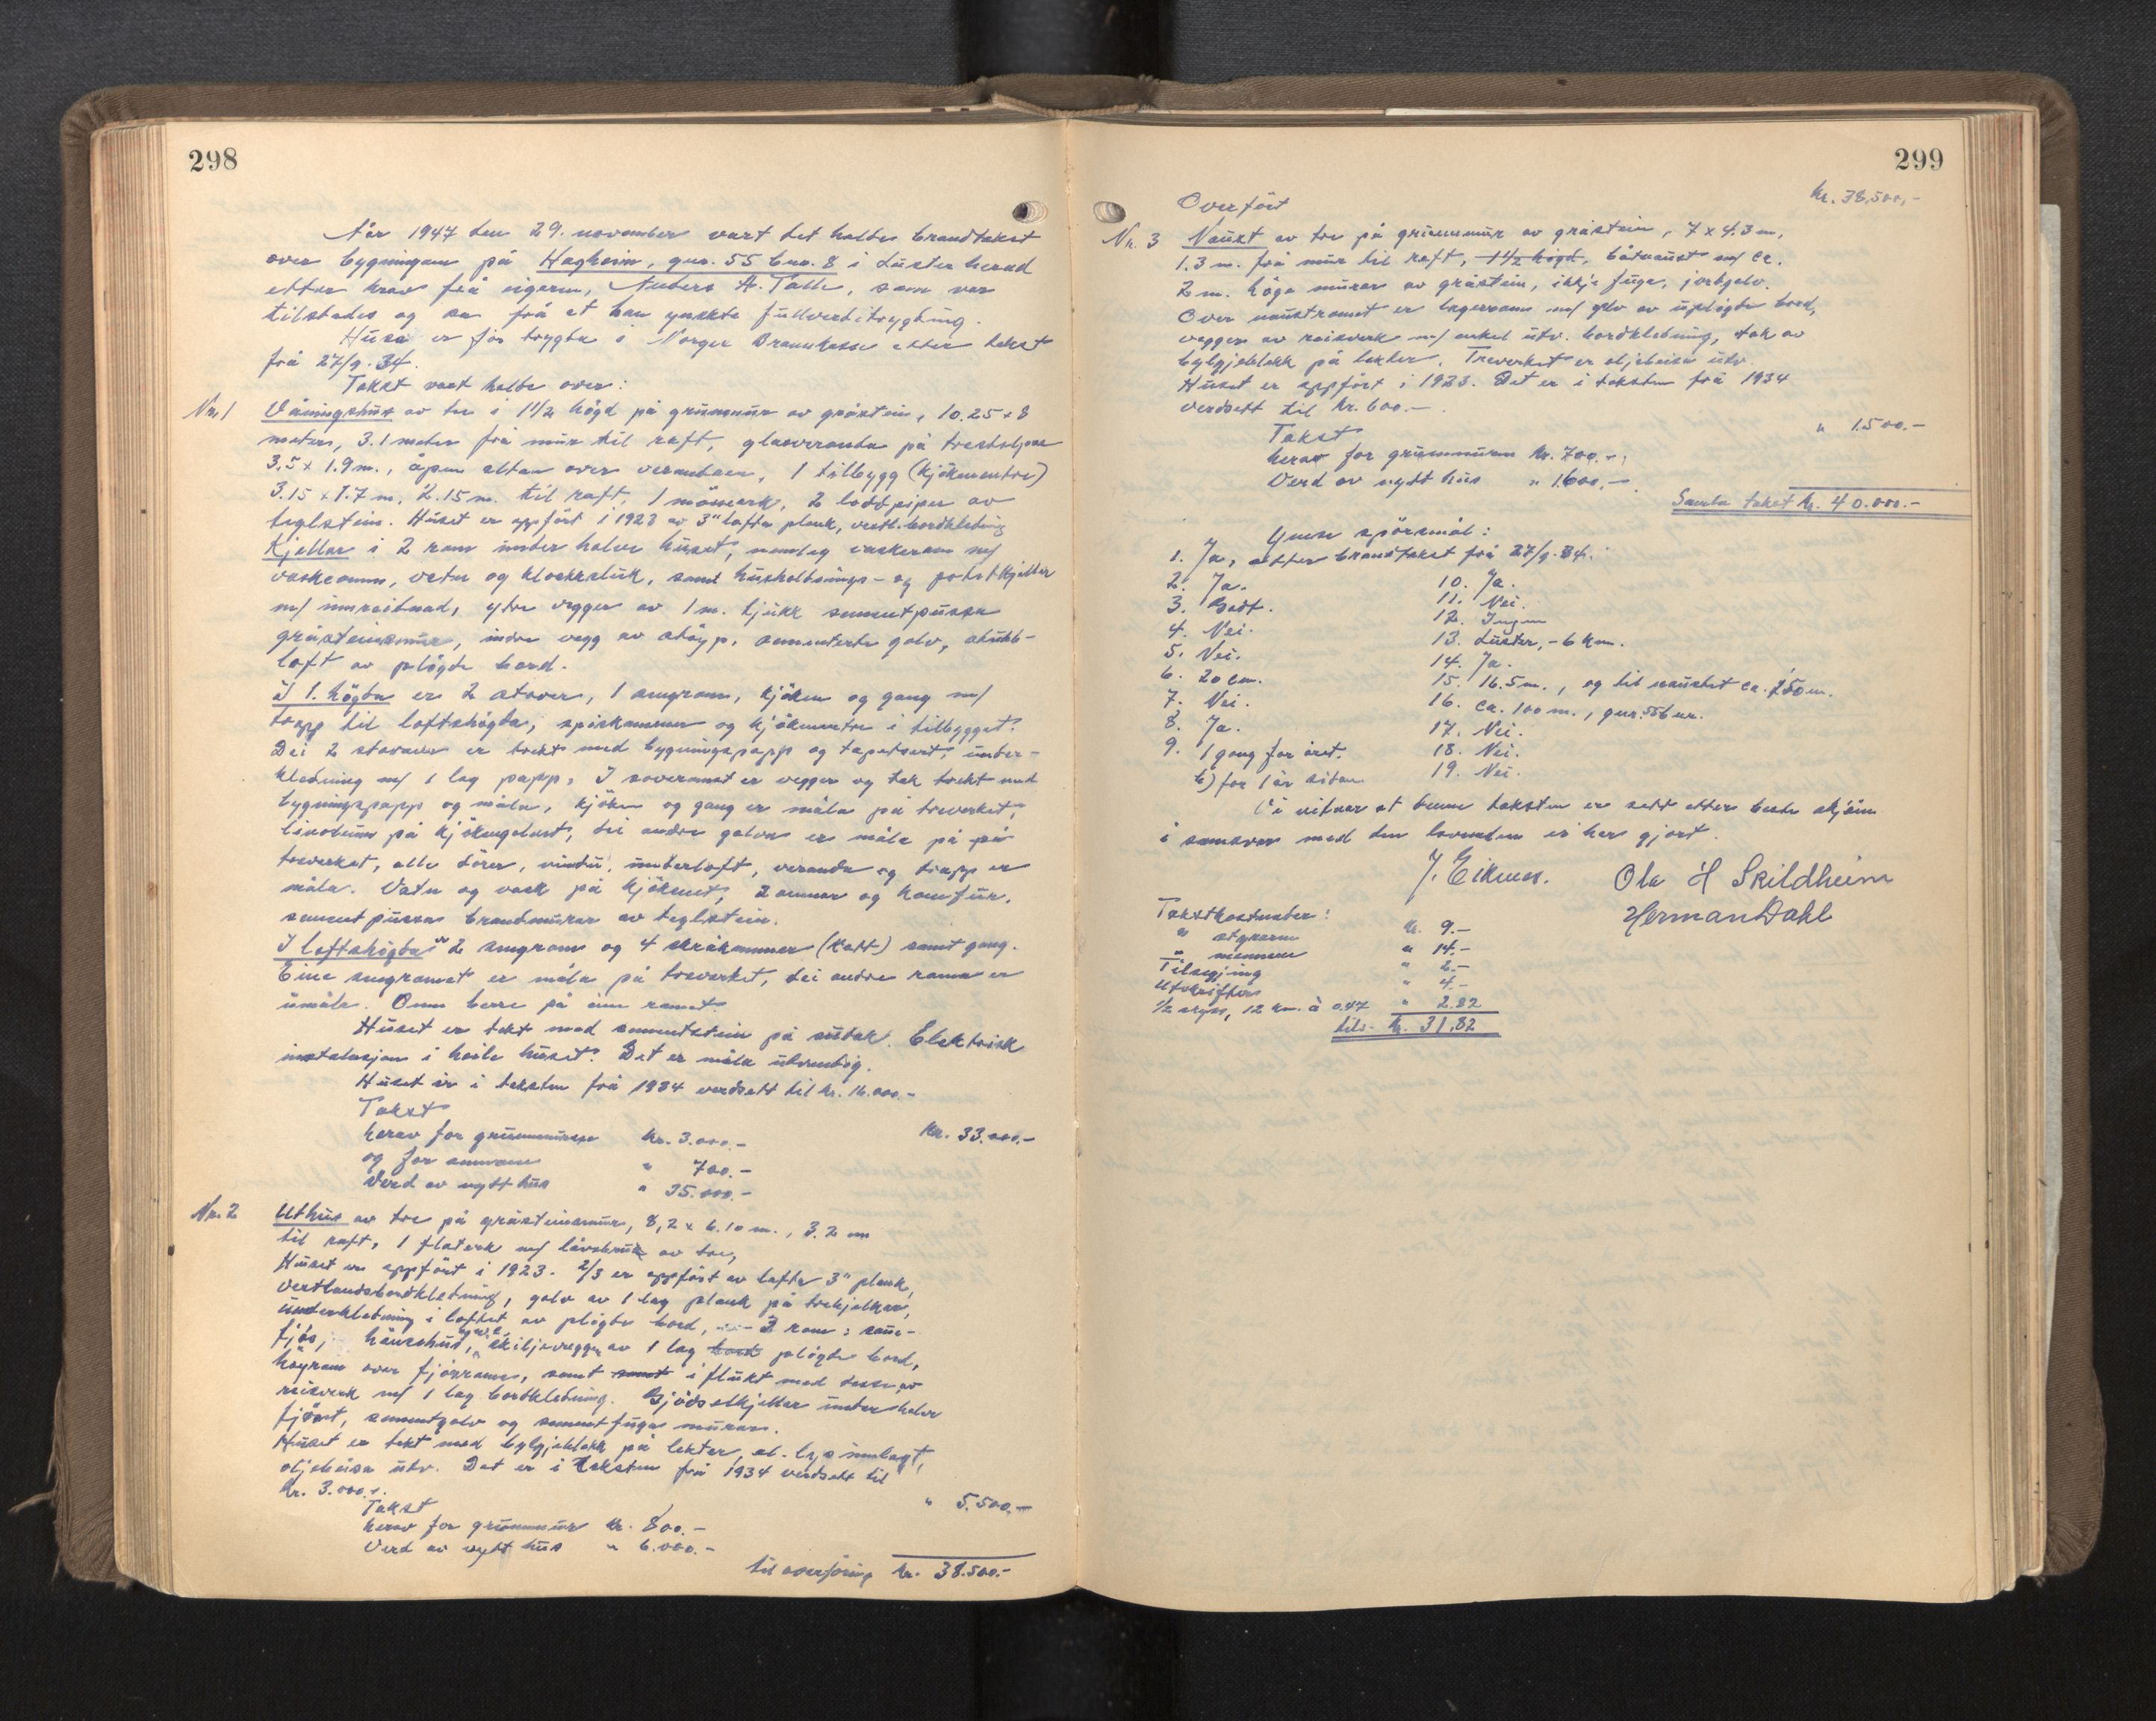 298
År 1947 den 29. november vart det halde brandtakst
over bygningane på Hagheim, gnr. 55 bnr. 8 i Luster herad
etter krav frå eigaren, Anders A. Talle, som var
tilstades og sa frå at han ynskte fullverditrygding.
Husa er før trygda i Norges Brannkasse etter takst
frå 27/9.34.
Takst vart halde over:
Nr. 1 Våningshus av tre i 1 1/2 høgd på grunnmur av gråstein, 10.25 x 8
meter, 3.1 meter frå mur til raft, glasveranda på trestolpar
3.5 x 1.9 m., åpen altan over verandaen, 1 tilbygg (kjökenentre)
3.15 x 1.7 m, 2.15 m. til raft, 1 möneark, 2 loddpiper av
teglstein. Huset er oppfört i 1923 av 3" lafta plank, vestl. bordkledning
Kjellar i 2 rom under halve huset, nemleg vaskerom m/
vaskeomn, vatn og kloakksluk, samt husholdnings- og potetkjeller
m/ innreidnad, ytre vegger av 1 m. tjukk sementpussa
gråsteinsmur, indre vegg av støyp, sementerte golv, stubb-
loft av plögde bord.
I 1. högda er 2 stover, 1 sengrom, kjöken og gang m/
trapp til loftshögda, spiskammer og kjökenentre i tilbygget.
Dei 2 stovene er trekt med bygningspapp og tapetsert, under-
kledning m/ 1 lag papp, I soveromet er vegger og tak trekt med
bygningspapp og måla, kjöken og gang er måla på treverket,
linoleum på kjökengolvet, dei andre golva er måla på på
treverket, alle dörer, vindu, underloft, veranda og trapp er
måla. Vatn og vask på kjökenet, 2 omnar og komfur.
sementpussa brandmurar av teglstein.
I loftshögda er 2 sengrom og 4 skråkammer (kott) samt gang.
Eine sengromet er måla på treverket, dei andre romma er
umåla. Omn berre på eine romet.
Huset er tekt med sementstein på sutak. Elektrisk
instalasjon i heile huset. Det er måla utvendig.
Huset er i taksten frå 1934 verdsett til kr. 16.000.-
Takst kr. 33.000.-
herav for grunnmuren kr. 3.000.-
og for omnane " 700.-
Verd av nytt hus " 35.000.-
Nr. 2 Uthus av tre på gråsteinsmur, 8,2 x 6.10 m., 3.2 m
til raft, 1 flatark m/ låvebru av tre,
Huset er oppfört i 1923. 2/3 er oppfört av lafta 3" plank,
vestlandsbordkledning, golv av 1 lag plank på trebjelkar,
underkledning i loftet av plögde bord, 2 rom: saue-
fjös, hönsehus, skiljevegger av 1 lag bord plögde bord,
høyrom over fjösromma, samt samt i flukt med desse av
reisverk m/ 1 lag bordkledning. Gjödselkjellar under halve
fjöset, sementgolv og sementfuga murar.
Huset er tekt med bylgjeblekk på lekter, el. lys innlagt,
oljebeisa utv. Det er i taksten frå 1934 verdsett til
kr. 3.000.-.
Takst " 5.500.-
herav for grunnmur kr. 800.-
Verd av nytt hus " 6.000.-
til overföring kr. 38.500.-
299
Overfört kr. 38,500,-
Nr. 3 Naust av tre på grunnmur av gråstein, 7 x 4.3 m,
1.3 m. frå mur til raft, 1 1/2 högd, båtnaust m/ ca.
2 m. höge murar av gråstein, ikkje fuga, jordgolv.
Over naustromet er lagerrom m/ golv av uplögde bord,
vegger av reisverk m/ enkel utv. bordkledning, tak av
bylgjeblekk på lekter. Treverket er oljebeisa utv.
Huset er oppfört i 1923. Det er i taksten frå 1934
verdsett til kr. 600.-.
Takst " 1.500.-
herav for grunnmuren kr. 700.-.
Verd av nytt hus " 1600.-.
Samla takst kr. 40.000.-
Ymse spörsmål:
1. Ja, etter brandtakst frå 27/9.34.
2. Ja.
3. Godt.
4. Nei.
5. Nei.
6. 20 cm.
7. Nei.
8. Ja.
9. 1 gong for året.
b) for 1 år sidan
10. Ja.
11. Nei.
12. Ingen
13. Luster, - 6 km.
14. Ja.
15. 16.5 m., og til naustet ca. 150 m.
16. ca. 100 m., gnr. 55 bnr.
17. Nei.
18. Nei.
19. Nei.
Vi vitnar at denne taksten er sett etter beste skjön
i samsvar med den lovnaden vi har gjort.
J. Eiknes. Ola H Skildheim
Herman Dahl
Takstkostnader:
" styraren kr. 9.-
" mennene " 14.-
Tilseging " 2.-
Utskrifter " 4.-
1/2 skyss, 12 km. à 0.47 " 2.82
tils. kr. 31,82